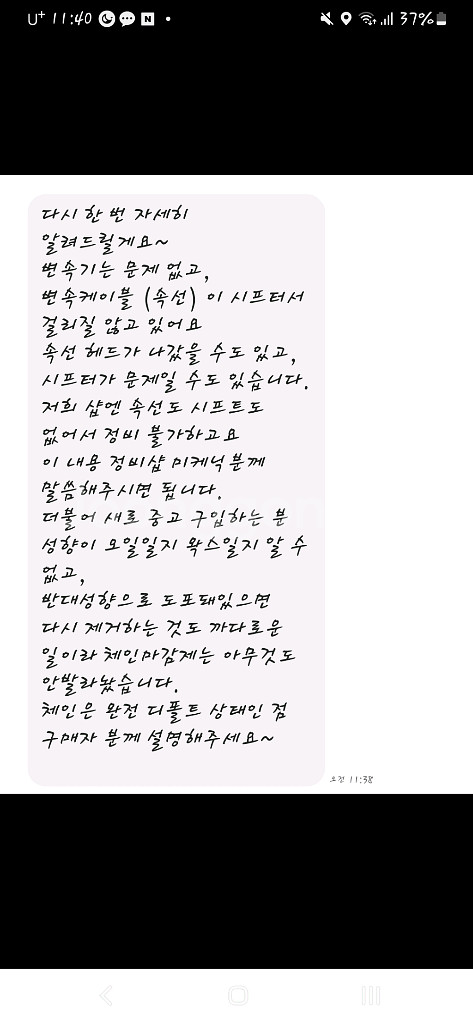 U+ 11:40 N 37%
다시 한 번 자세히
알려드릴게요~
변속기는 문제 없고,
변속케이블 (속선) 이 시프터서
걸리질 않고 있어요
속선 헤드가 나갔을 수도 있고,
시프터가 문제일 수도 있습니다.
저희 샵엔 속선도 시프트도
없어서 정비 불가하고요
이 내용 정비샵 미케닉분께
말씀해주시면 됩니다.
더불어 새로 중고 구입하는 분
성향이 오일일지 왁스일지 알 수
없고,
반대성향으로 도포돼있으면
다시 제거하는 것도 까다로운
일이라 체인마감제는 아무것도
안발라놨습니다.
체인은 완전 디폴트 상태인 점
구매자 분께 설명해주세요~
오전 11:38